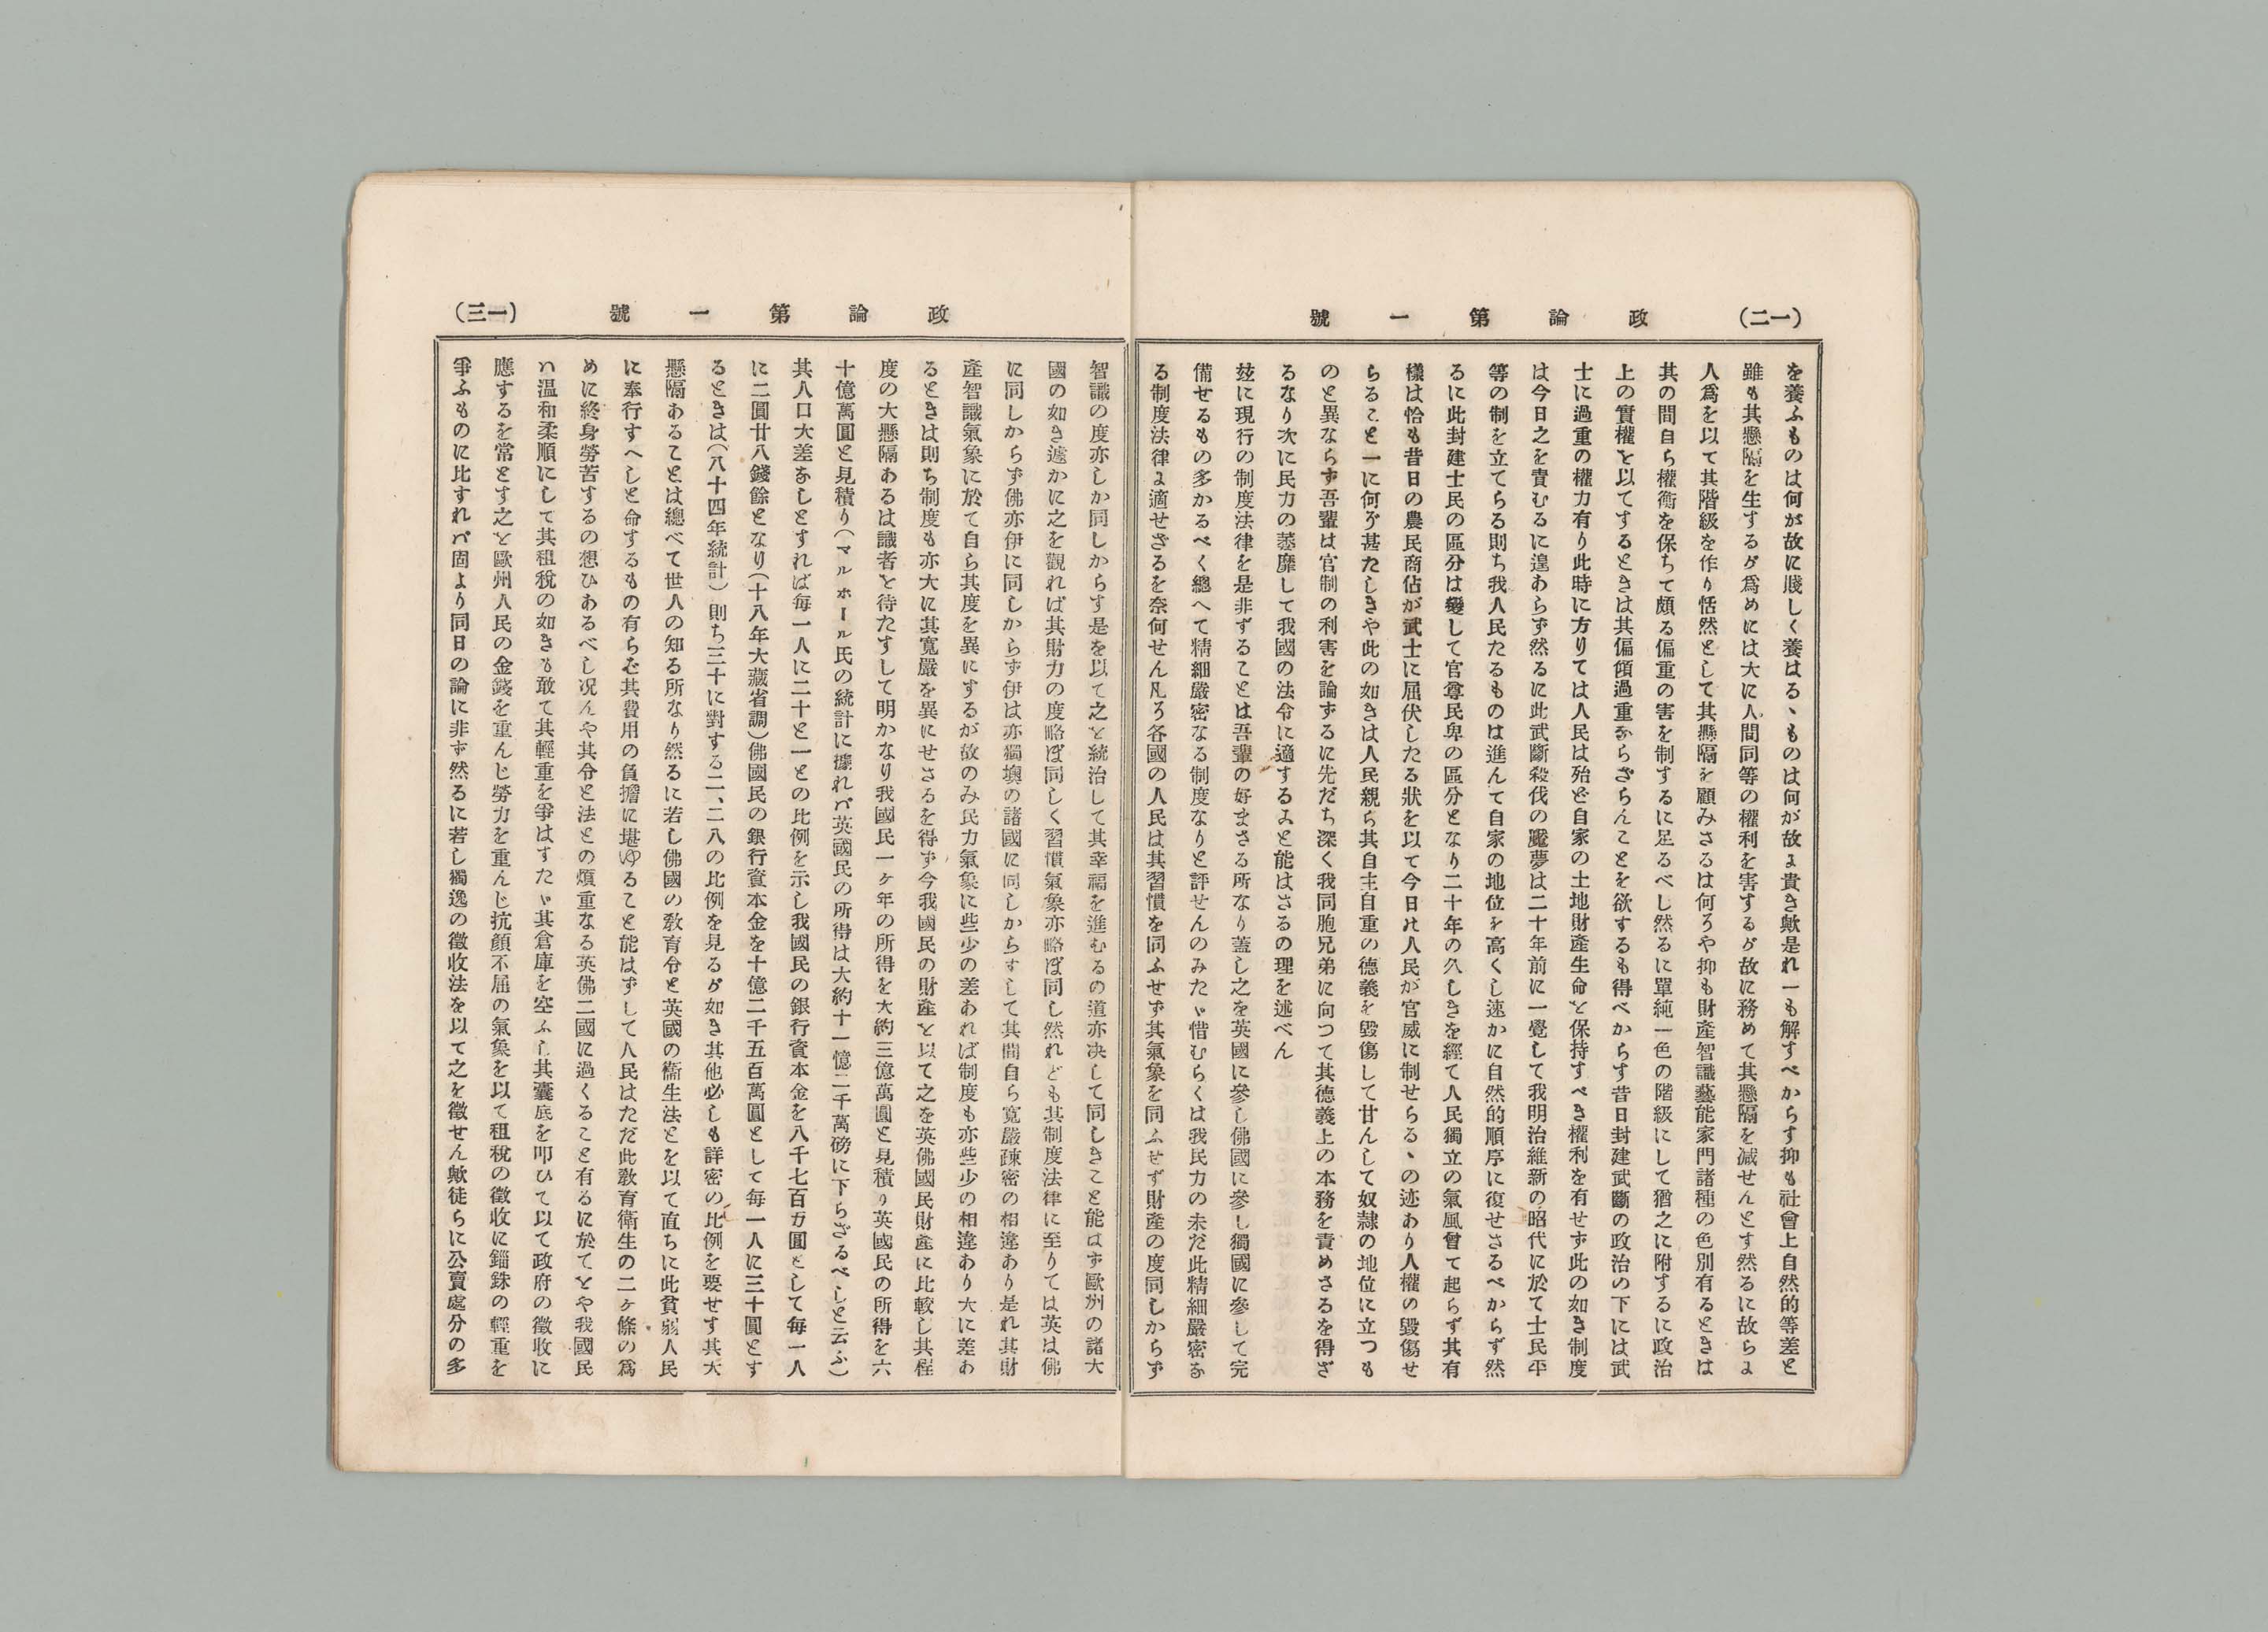 (一二)
政論第一號
を養ふものは何が故に賤しく養はるゝものは何が故ょ貴き歟是れ一も解すべからす抑も社會上自然的等差と
雖も其懸隔を生するが爲めには大に人間同等の權利を害するが故に務めて其懸隔を減せんとす然るに故らょ
人爲を以て其階級を作り恬然として其懸隔を顧みさるは何ろや抑も財產智識藝能家門諸種の色別有るときは
其の間自ら權衡を保ちて頗る偏重の害を制するに足るべし然るに單純一色の階級にして猶之に附するに政治
上の實權を以てするときは其偏傾過重ならざらんことを欲するも得べからす昔日封建武斷の政治の下には武
士に過重の權力有り此時に方りては人民は殆ど自家の土地財產生命と保持すべき權利を有せず此の如き制度
は今日之を責むるに遑あらず然るに此武斷殺伐の魘夢は二十年前に一覺して我明治維新の昭代に於て士民平
等の制を立てらる則ち我人民たるものは進んて自家の地位を高くし速かに自然的順序に復せさるべからず然
るに此封建士民の區分は變して官尊民卑の區分となり二十年の久しきを經て人民獨立の氣風曾て起らず其有
樣は恰も昔日の農民商估が武士に屈伏したる狀を以て今日は人民が官威に制せらるゝの迹あり人權の毀傷せ
らるこど一に何ぞ甚たしきや此の如きは人民親ら其自主自重の德義を毀傷して甘んして奴隷の地位に立つも
のと異ならす吾輩は官制の利害を論ずるに先だち深く我同胞兄弟に向つて其德義上の本務を責めさるを得ざ
るなり次に民力の萎靡して我國の法令に適するよと能はさるの理を述べん
玆に現行の制度法律を是非ずることは吾輩の好まさる所なり蓋し之を英國に參し佛國に參し獨國に參して完
備せるもの多かるべく總へて精細嚴密なる制度なりと評せんのみたゞ惜むらくは我民力の未だ此精細嚴密な
る制度法律ょ適せざるを奈何せん凡ろ各國の人民は其習慣を同ふせず其氣象を同ふせず財產の度同しからず
(一三)
政論第一號
智識の度亦しか同しからす是を以て之と統治して其幸福を進むるの道亦决して同しきこと能はず歐洲の諸大
國の如き遽かに之を觀れば其財力の度略ぼ同しく習慣氣象亦略ぼ同し然れども其制度法律に至りては英は佛
に同しからず佛亦伊に同しからず伊は亦獨墺の諸國に同しからすして其間自ら寬嚴疎密の相違あり是れ其財
產智識氣象に於て自ら其度を異にするが故のみ民力氣象に些少の差あれば制度も亦些少の相違あり大に差あ
るときは則ち制度も亦大に其寬嚴を異にせさるを得ず今我國民の財產と以て之を英佛國民財產に比較し其程
度の大懸隔あるは識者を待たすして明かなり我國民一ヶ年の所得を大約三億萬圓と見積り英國民の所得を六
十億萬圓と見積り(マルホール氏の統計に據れバ英國民の所得は大約十一億二千萬磅に下らざるべしと云ふ)
其人口大差なしとすれば每一人に二十と一との比例を示し我國民の銀行資本金を八千七百万圓として每一人
に二圓廿八錢餘となり(十八年大藏省調)佛國民の銀行資本金を十億二千五百萬圓として每一人に三十圓とす
るときは(八十四年統計)則ち三十に對する二、二八の比例を見るが如き其他必しも詳密の比例を要せす其大
懸隔あることは總べて世人の知る所なり然るに若し佛國の敎育令と英國の衞生法とを以て直ちに此貧弱人民
に奉行すへしと命するもの有らむ其費用の負擔に堪ゆること能はずして人民はただ此敎育衛生の二ヶ條の爲
めに終身勞苦するの想ひあるべし况んや其令と法との煩重なる英佛二國に過くること有るに於てとや我國民
ハ温和柔順にして其租稅の如きも敢て其輕重を爭はすたゞ其倉庫を空ふし其囊底を叩ひて以て政府の徵收に
應するを常とす之と歐州人民の金錢を重んじ勞力を重んじ抗顏不屈の氣象を以て租稅の徵收に錙銖の輕重を
爭ふものに比すれバ固より同日の論に非ず然るに若し獨逸の徵收法を以て之を徵せん歟徒らに公賣處分の多